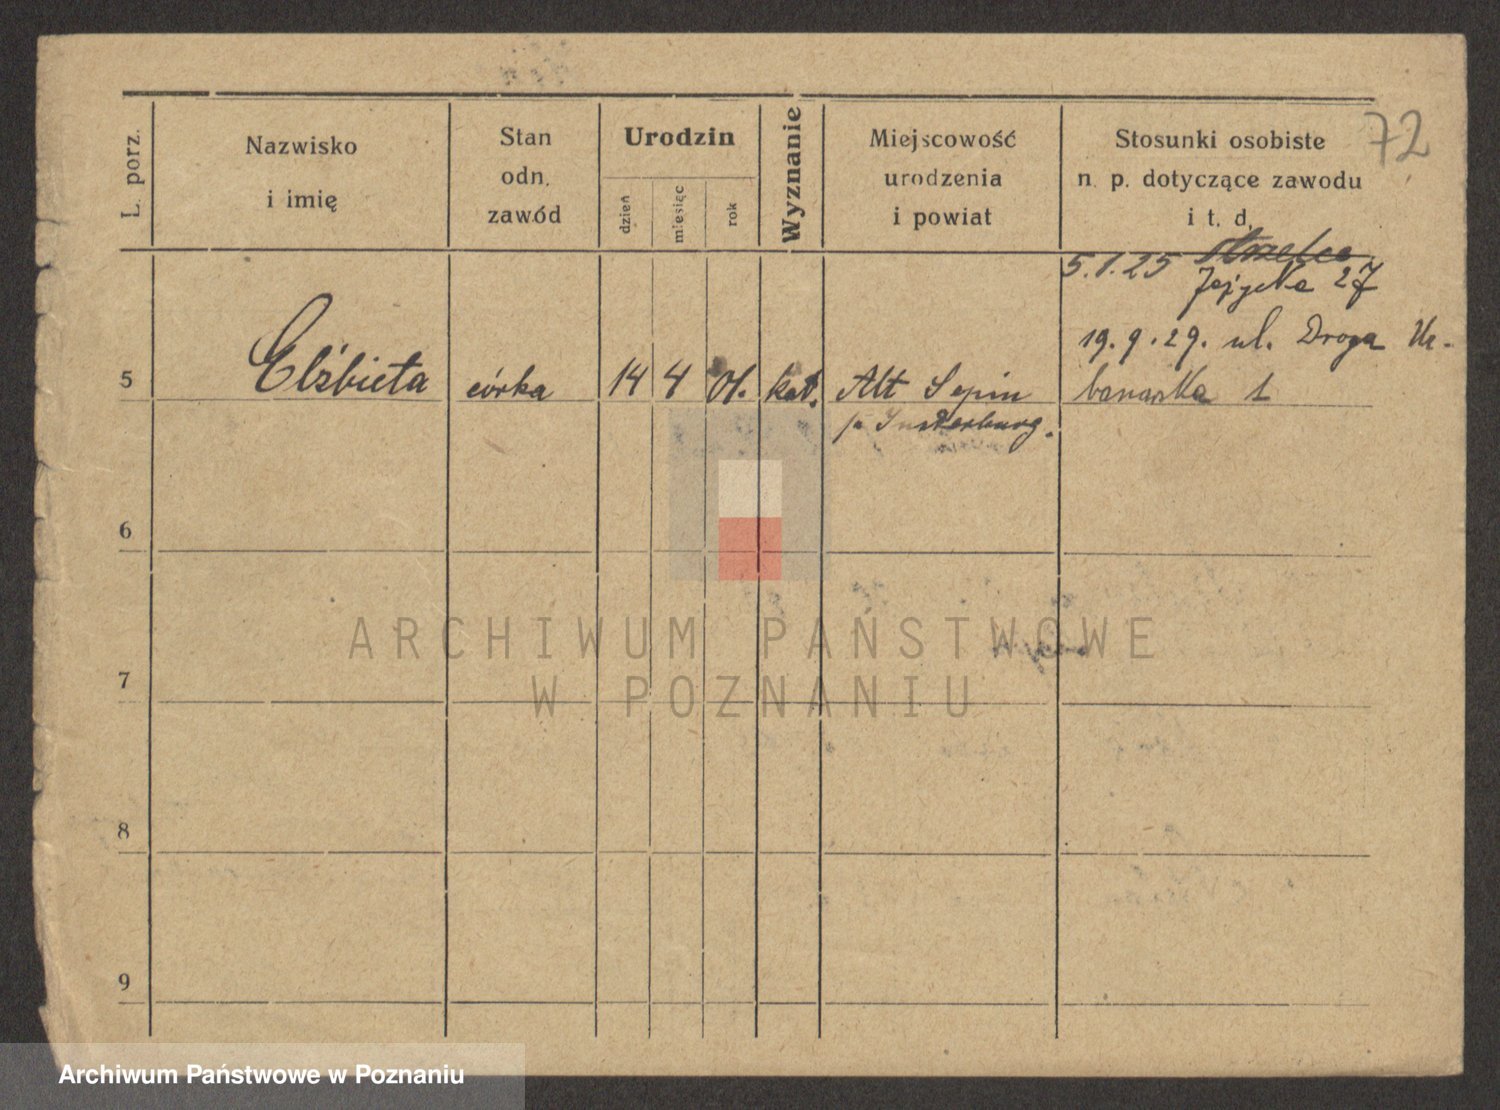 72
L. porz.
Nazwisko
i imię
Stan
odn.
zawód
Urodzin
dzień
miesiąc
rok
Wyznanie
Miejscowość
urodzenia
i powiat
Stosunki osobiste
n. p. dotyczące zawodu
i t. d.
5.1.25
27
19.9.29. ul. Droga Ur-
banowska 1
5
Elżbieta
córka
14
4
01.
kat.
Alt
Insterburg.
6
7
8
9
ARCHIWUM PAŃSTWOWE
W POZNANIU
Archiwum Państwowe w Poznaniu